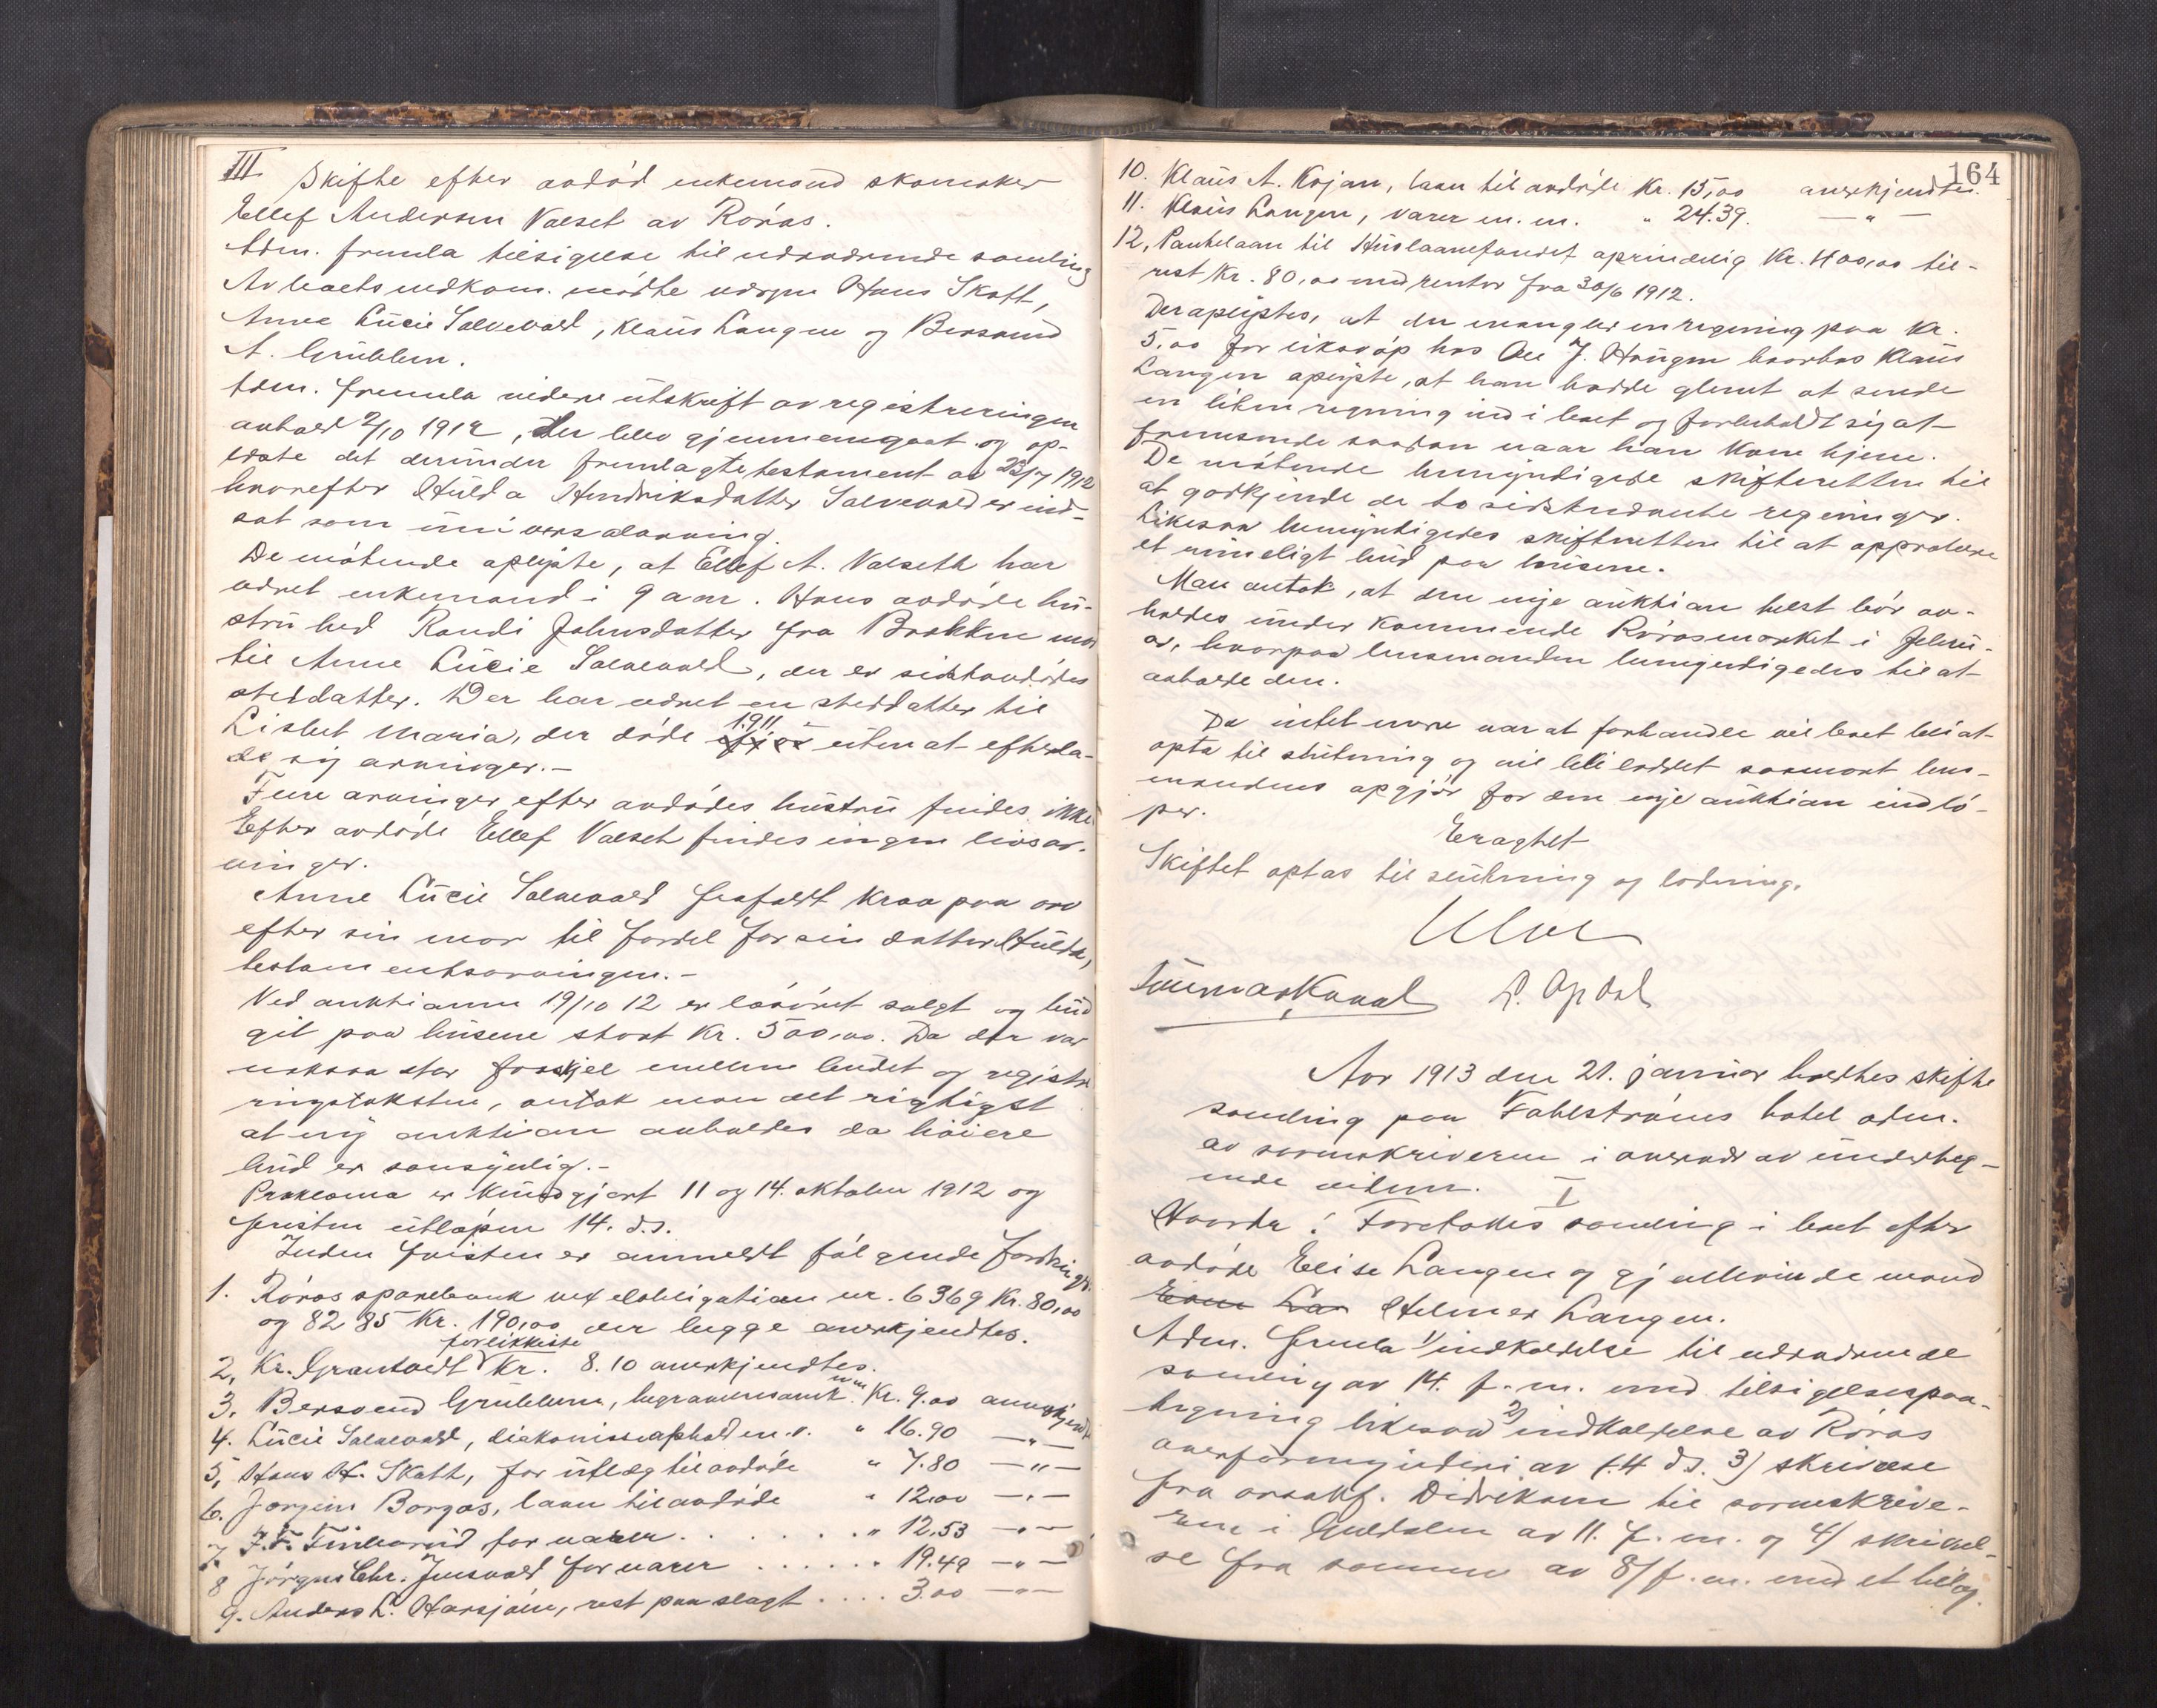 III. Skifte efter avdød enkemand skomaker
Ellef Andersen Valset av Røros.
Adm. fremla tilsigelse til nærværende samling
Av boets vedkom. mødte værgen Hans Skott,
Anne Lucie Salvevold, Klaus Langen og Bersvend
A. Grubben.
Adm. fremla videre utskrift av registreringen
avholdt 2/10 1912, der blev gjennemgaat og op-
læste det derunder fremlagte testament av 23/7 1912
hvorefter Hulda Hendriksdatter Salvevold er ind-
sat som universalarving.
De møtende oplyste, at Ellef A. Valseth har
været enkemand i 9 aar. Hans avdøde hu-
stru hed Randi Johnsdatter fra Brekken mor
til Anne Lucie Salvevold, der er sidstavdødes
steddatter. Der har været en steddatter til
Lisbet Maria, der døde ifjor 1911 uten at efterla-
de sig arvinger.-
Flere arvinger efter avdødes hustru findes ikke
Efter avdøde Ellef Valseth findes ingen livsar-
vinger.
Anne Lucie Salvevold frafaldt krav paa arv
efter sin mor til fordel for sin datter Hulda,
testamentsarvingen.-
Ved auktionen 19/10 12 er løsøret solgt og bud
git paa husene stort Kr. 500,00. Da der var
noksaa stor forskjel mellem budet og registre
ringstaksten, antok man det rigtigst
at ny auktion avholdes da høiere
bud er sansynlig.-
Proklama er kundgjort 11 og 14. oktober 1912 og
fristen utløpen 14. ds.
Inden fristen er anmeldt følgende fordringer.
1. Røros sparebank vexelobligation nr. 6369 Kr. 80,00
og 8285 Kr. 190,00 der begge anerkjendtes.
2, Kr. Grantvedt for likkiste Kr. 8.10 anerkjendtes.
3. Bersvend Grubben, begravelsesomk. m.m. Kr. 9.00 anerkjendt
4. Lucie Salvevold, diakonisseophold m.v. " 16.90 — " —
5, Hans H. Skott, for utlæg til avdøde " 7.80 — " —
6. Jørgen Borgos, laan til avdøde " 12,00 — " —
7. F. Finborud for varer . . . . . . " 12,53 — " —
8 Jørgen Chr. Jensvold for varer . . . . . " 19.49 — " —
9. Anders L. Harsjøen, rest paa slagt . . . . 3.00 — " —
164
10. Klaus A. Kojan, laan til avdøde Kr. 15,00 anerkjendtes.
11. Klaus Langen, varer m.m. " 24.39. — " —
12, Pantelaan til Huslaanefondet oprindelig Kr. 400,00 til-
rest Kr. 80,00 med renter fra 30/6 1912.
Der oplystes, at der mangler en regning paa Kr.
5,00 for liksvøp hos Ole J. Haugen hvorhos Klaus
Langen oplyste, at han hadde glemt at sende
en liten regning ind i boet og forbeholdt sig at
fremsende saadan naar han kom hjem.
De møtende bemyndigede skifteretten til
at godkjende de to sidstnævnte regninger.
Likesaa bemyndigedes skifteretten til at approbere
et rimeligt bud paa husene.
Man antok, at den nye auktion helst bør av-
holdes under kommende Rørosmarked i Febru-
ar, hvorpaa lensmanden bemyndigedes til at
avholde den.
Da intet mere var at forhandle vil boet bli at
opta til slutning og vil bli loddet saasnart lens-
mandens opgjør for den nye auktion indlø-
per.
Eragtet
Skiftet optas til slutning og lodning.
Gunnar Kvaal P. Opdal
Aar 1913 den 21. januar holdtes skifte
samling paa Fahlstrøms hotel adm.
av sorenskriveren i overvær av underteg-
nede vidner. I
Hvorda! Foretokes samling i boet efter
avdøde Elise Langen og gjenlevende mand
Helmer Langen.
Adm. fremla 1/ indkaldelse til nærværende
samling av 14. f.m. med tilsigelsespaa-
tegning likesaa 2) indkaldelse av Røros
overformynderi av 14 ds. 3) skrivelse
fra oraakf. Didriksen til sorenskrive-
ren i Guldalen av 11. f.m. og 4/ skrivel-
se fra samme av 8/ f.m. med et bilag.